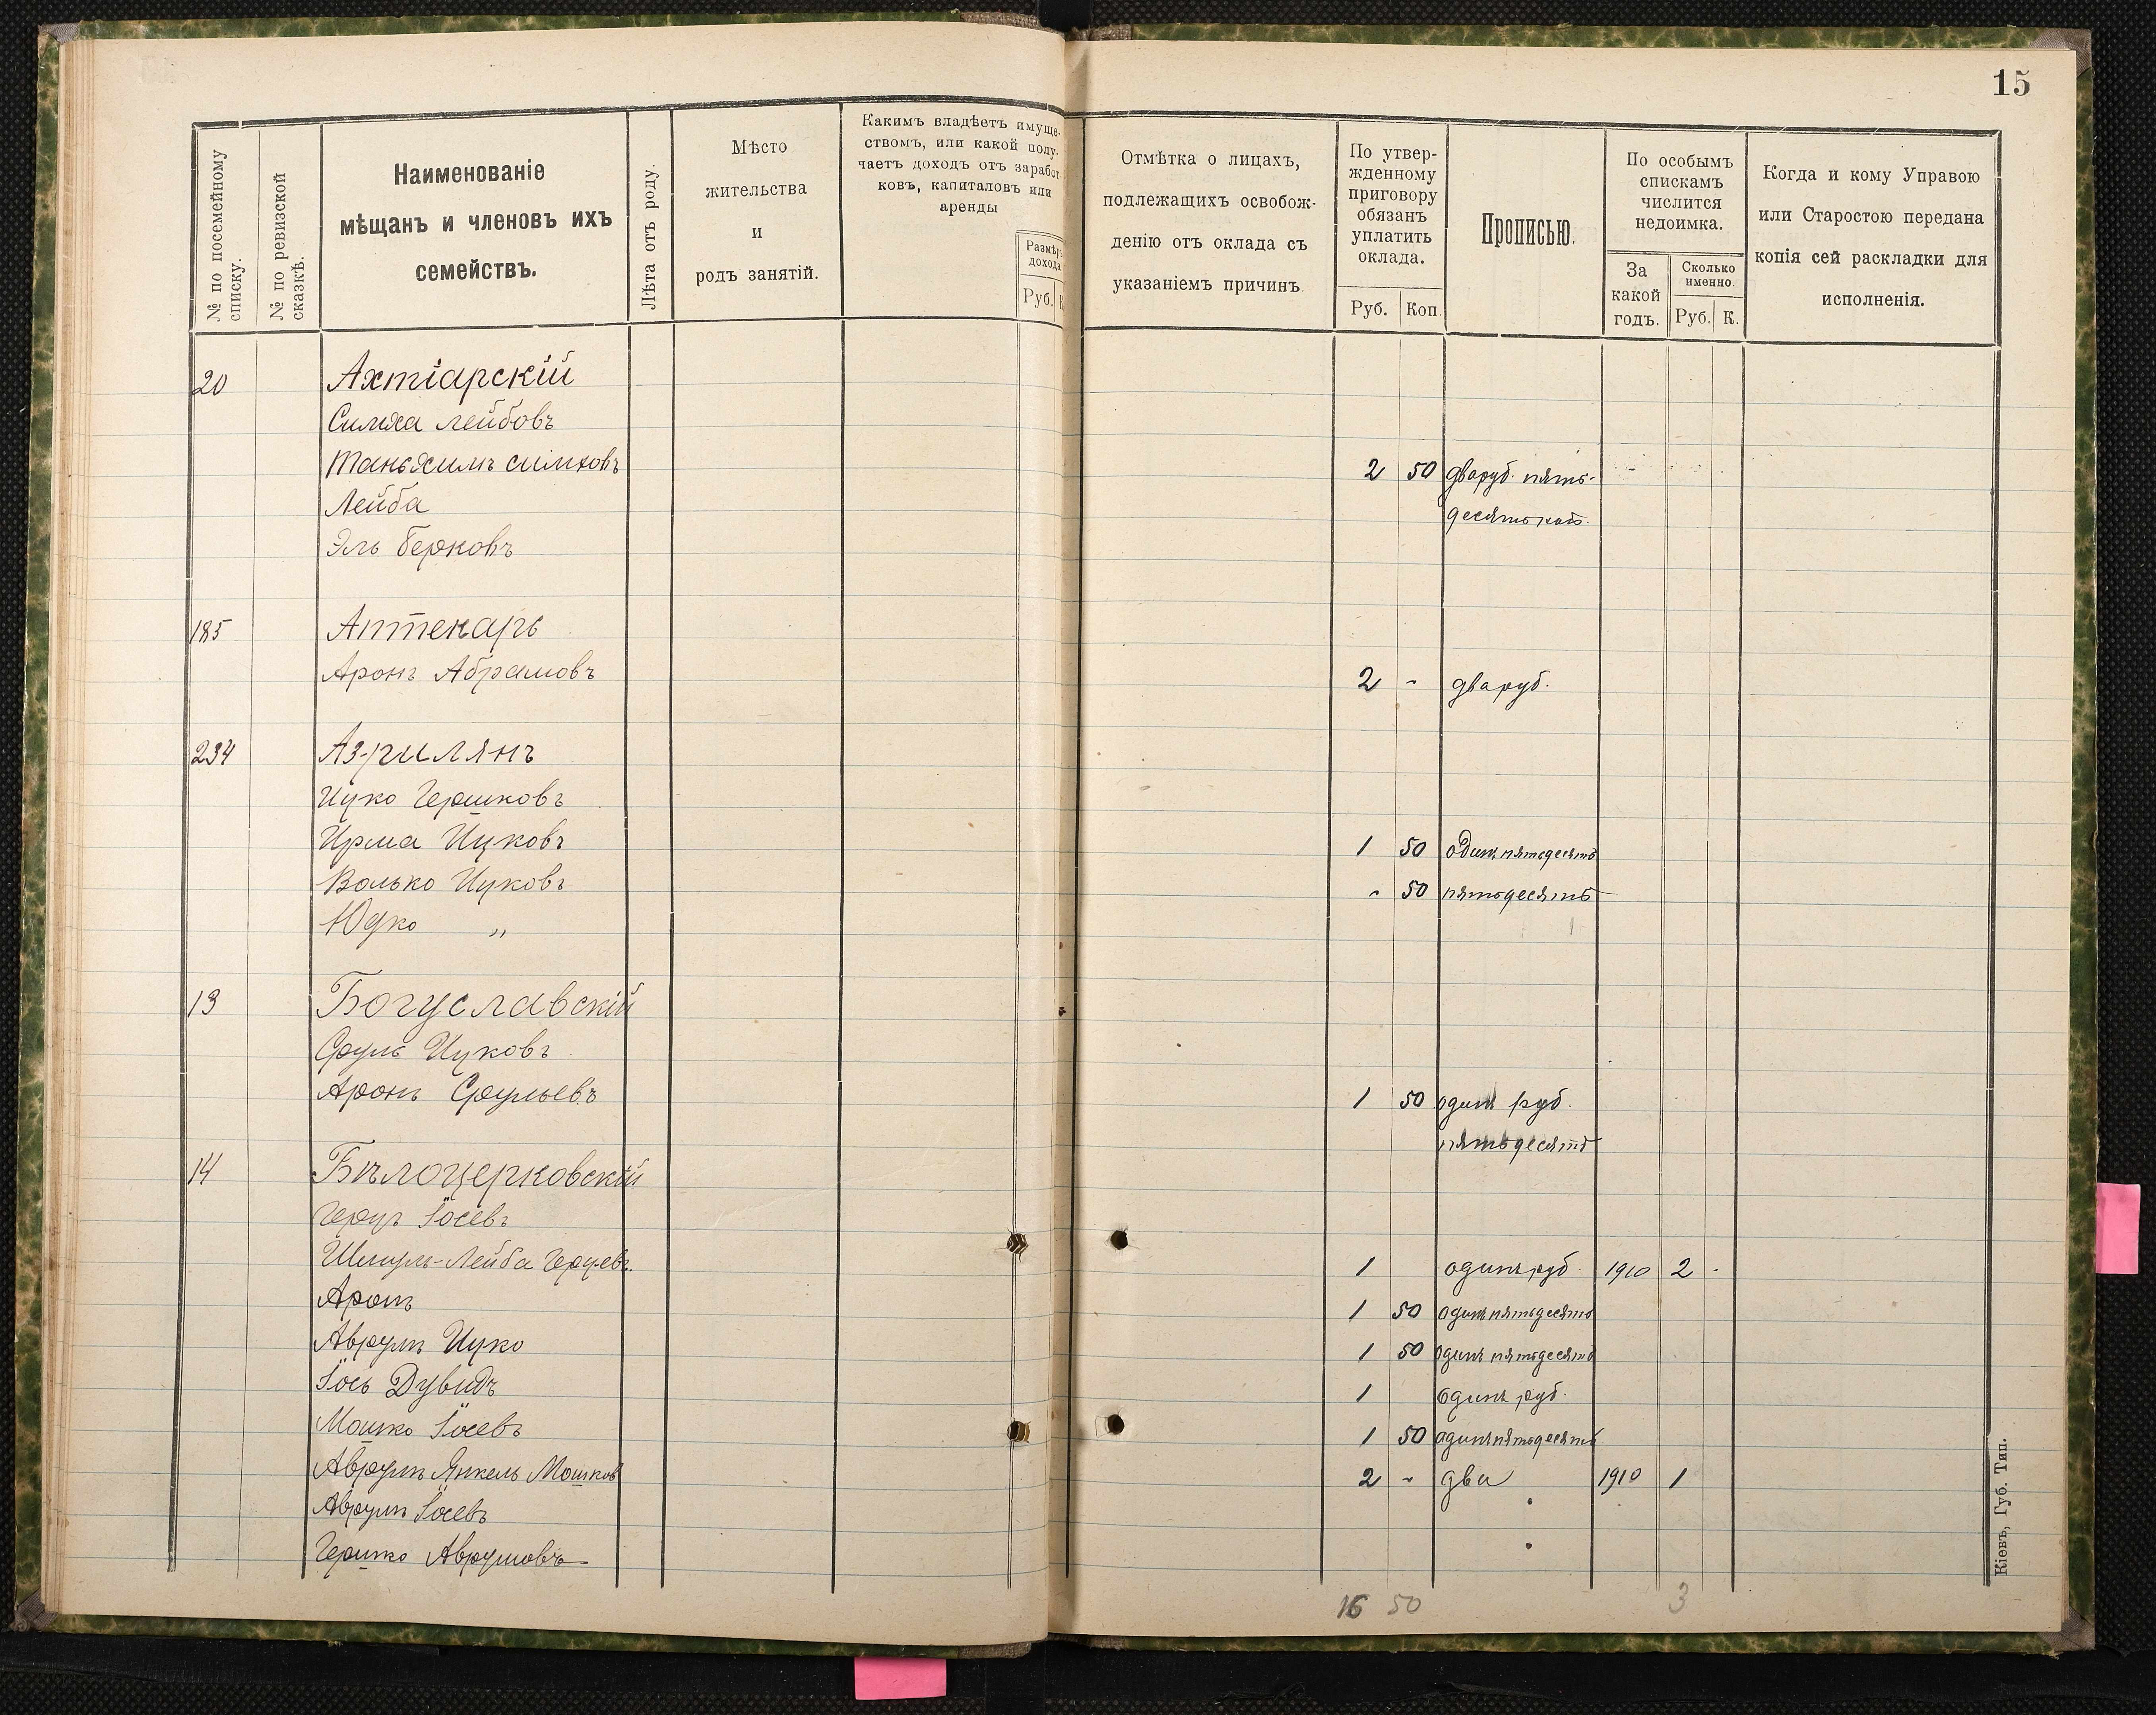 15
№ по посемейному списку.
№ по ревизской сказкѣ.
Наименованіе
мѣщанъ и членовъ ихъ
семействъ.
Лѣта отъ роду.
Мѣсто
жительства
и
родъ занятій.
Какимъ владѣетъ имуще-
ствомъ, или какой полу-
чаетъ доходъ отъ заработ-
ковъ, капиталовъ или
аренды
Размѣръ
дохода
Руб.
Отмѣтка о лицахъ,
подлежащихъ освобож-
денію отъ оклада съ
указаніемъ причинъ.
По утвер-
жденному
приговору
обязанъ
уплатить
оклада.
Руб. Коп.
Прописью.
По особымъ
спискамъ
числится
недоимка.
За
какой
годъ.
Сколько
именно.
Руб. К.
Когда и кому Управою
или Старостою передана
копія сей раскладки для
исполненія.
20 Ахтіарскій
Симха Лейбовъ
Симховъ 2 50 два руб. пять-
Лейба десять коп.
Эль Берковъ
185 Аптекарь
Аронъ Абрамовъ 2 - два руб.
234 Азрилянъ
Ицко Гершковъ
Ицковъ 1 50 одинъ пятьдесятъ
Волько Ицковъ " 50 пятьдесятъ
Юдко "
13 Богуславскій
Сруль Ицковъ
Аронъ Срульевъ 1 50 одинъ руб.
пятьдесятъ
14 Бѣлоцерковскій
Герцъ Іосевъ
Шмуль-Лейба Герцевъ. 1 одинъ руб. 1910 2 -
Аронъ 1 50 одинъ пятьдесятъ
Аврумъ Ицко 1 50 одинъ пятьдесятъ
Іось Дувидъ 1 одинъ руб.
Мошко Іосевъ 1 50 одинъ пятьдесятъ
Аврумъ Янкель Мошков 2 - два 1910 1
Аврумъ Іосевъ
ГершкоАврумовъ
16 50 3
Кіевъ, Губ. Тип.